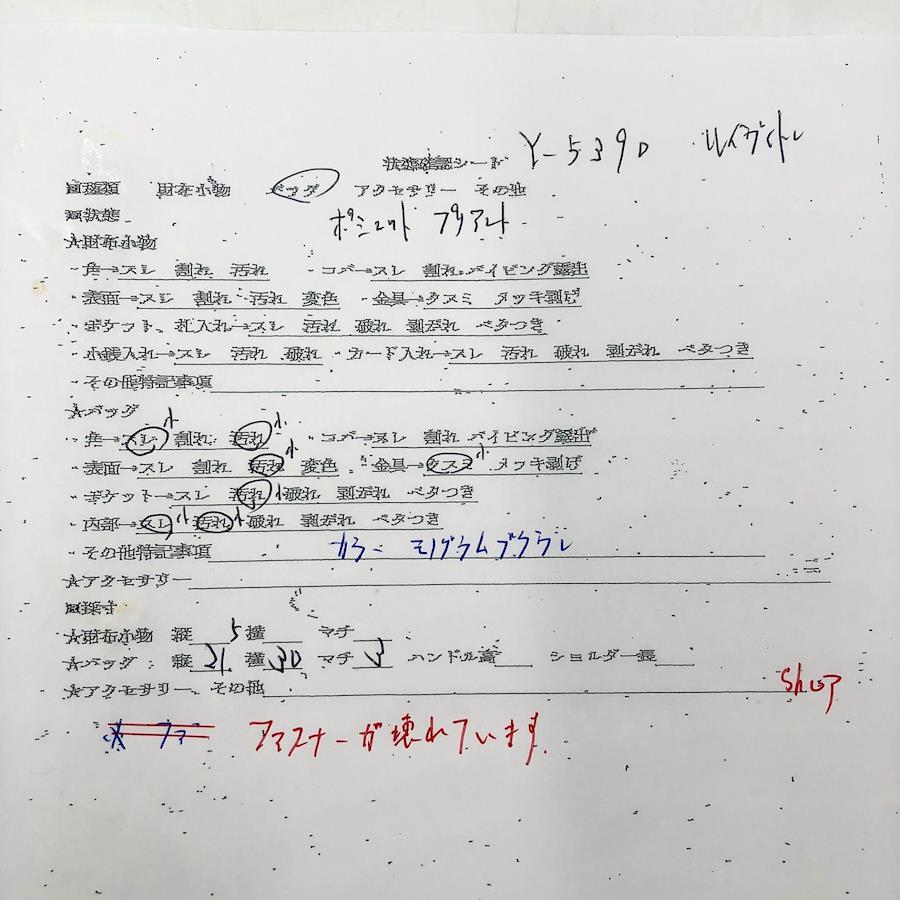 状態確認シート Y-5390 ルイヴィトン
■種類 財布小物 バッグ アクセサリー その他
■状態 ポシェット プリアント
★財布小物
・角→スレ 割れ 汚れ ・コバ→スレ 割れ パイピング露出
・表面→スレ 割れ 汚れ 変色 ・金具→クスミ メッキ剥げ
・ポケット、札入れ→スレ 汚れ 破れ 剥がれ ベタつき
・小銭入れ→スレ 汚れ 破れ ・カード入れ→スレ 汚れ 破れ 剥がれ ベタつき
・その他特記事項
★バッグ
・角→スレ 小 割れ 汚れ 小 ・コバ→スレ 割れ パイピング露出
・表面→スレ 割れ 汚れ 小 変色 ・金具→クスミ 小 メッキ剥げ
・ポケット→スレ 汚れ 小 破れ 剥がれ ベタつき
・内部→スレ 小 汚れ 小 破れ 剥がれ ベタつき
・その他特記事項 カラー モノグラムブラウン
★アクセサリー
■採寸
★財布小物 縦 5 横 マチ
★バッグ：縦 21 横 30 マチ 3 ハンドル高 ショルダー長
★アクセサリー、その他
ファ ファスナーが壊れています